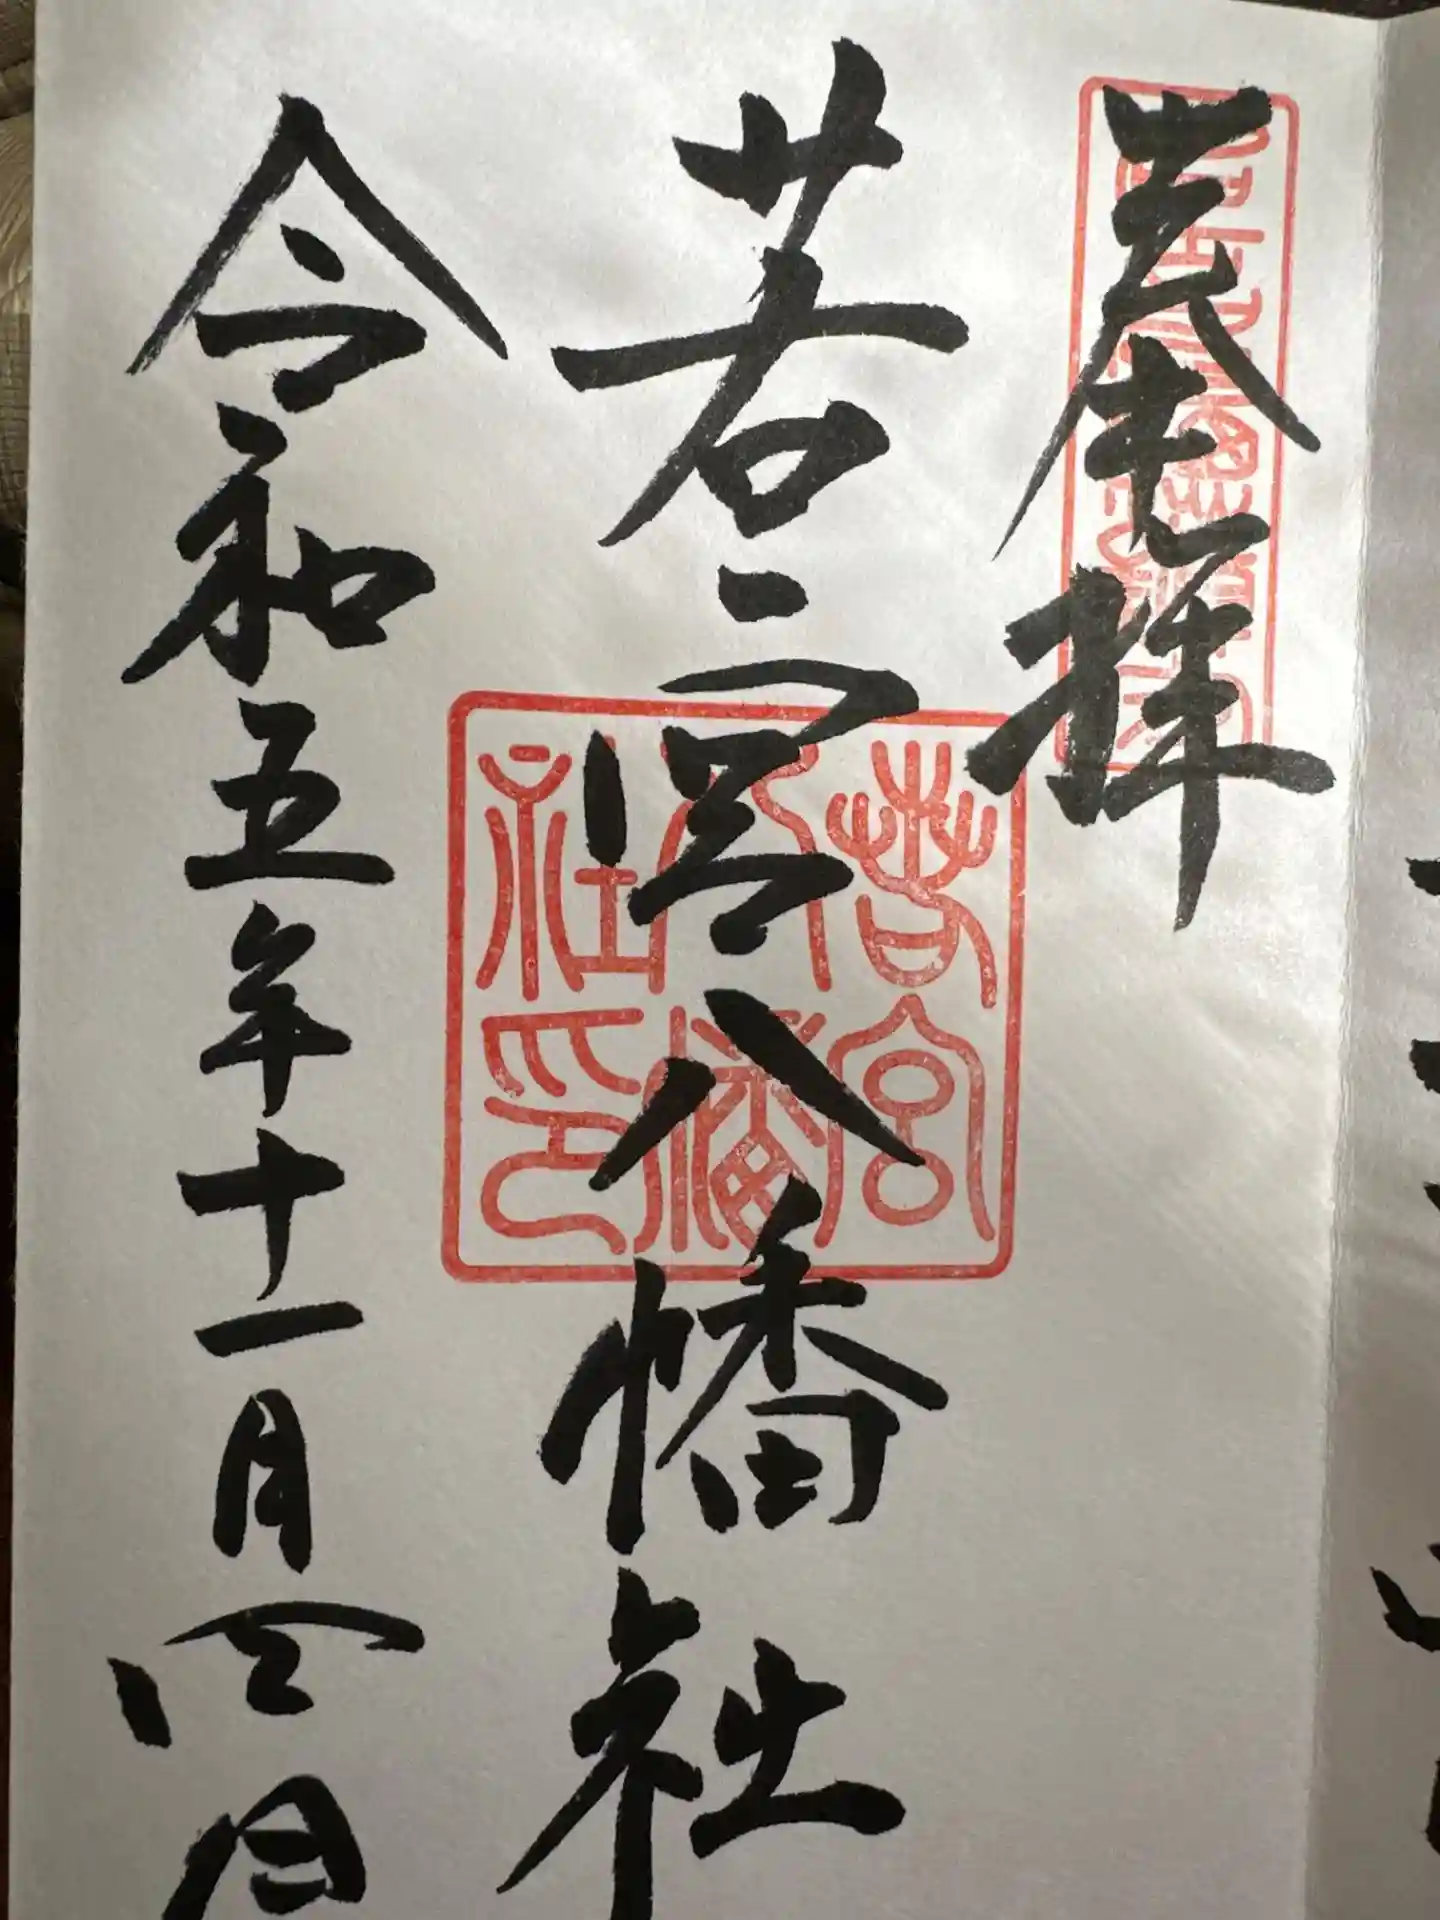 奉拝
若宮八幡社
若宮八幡社印
令和五年十一月四日